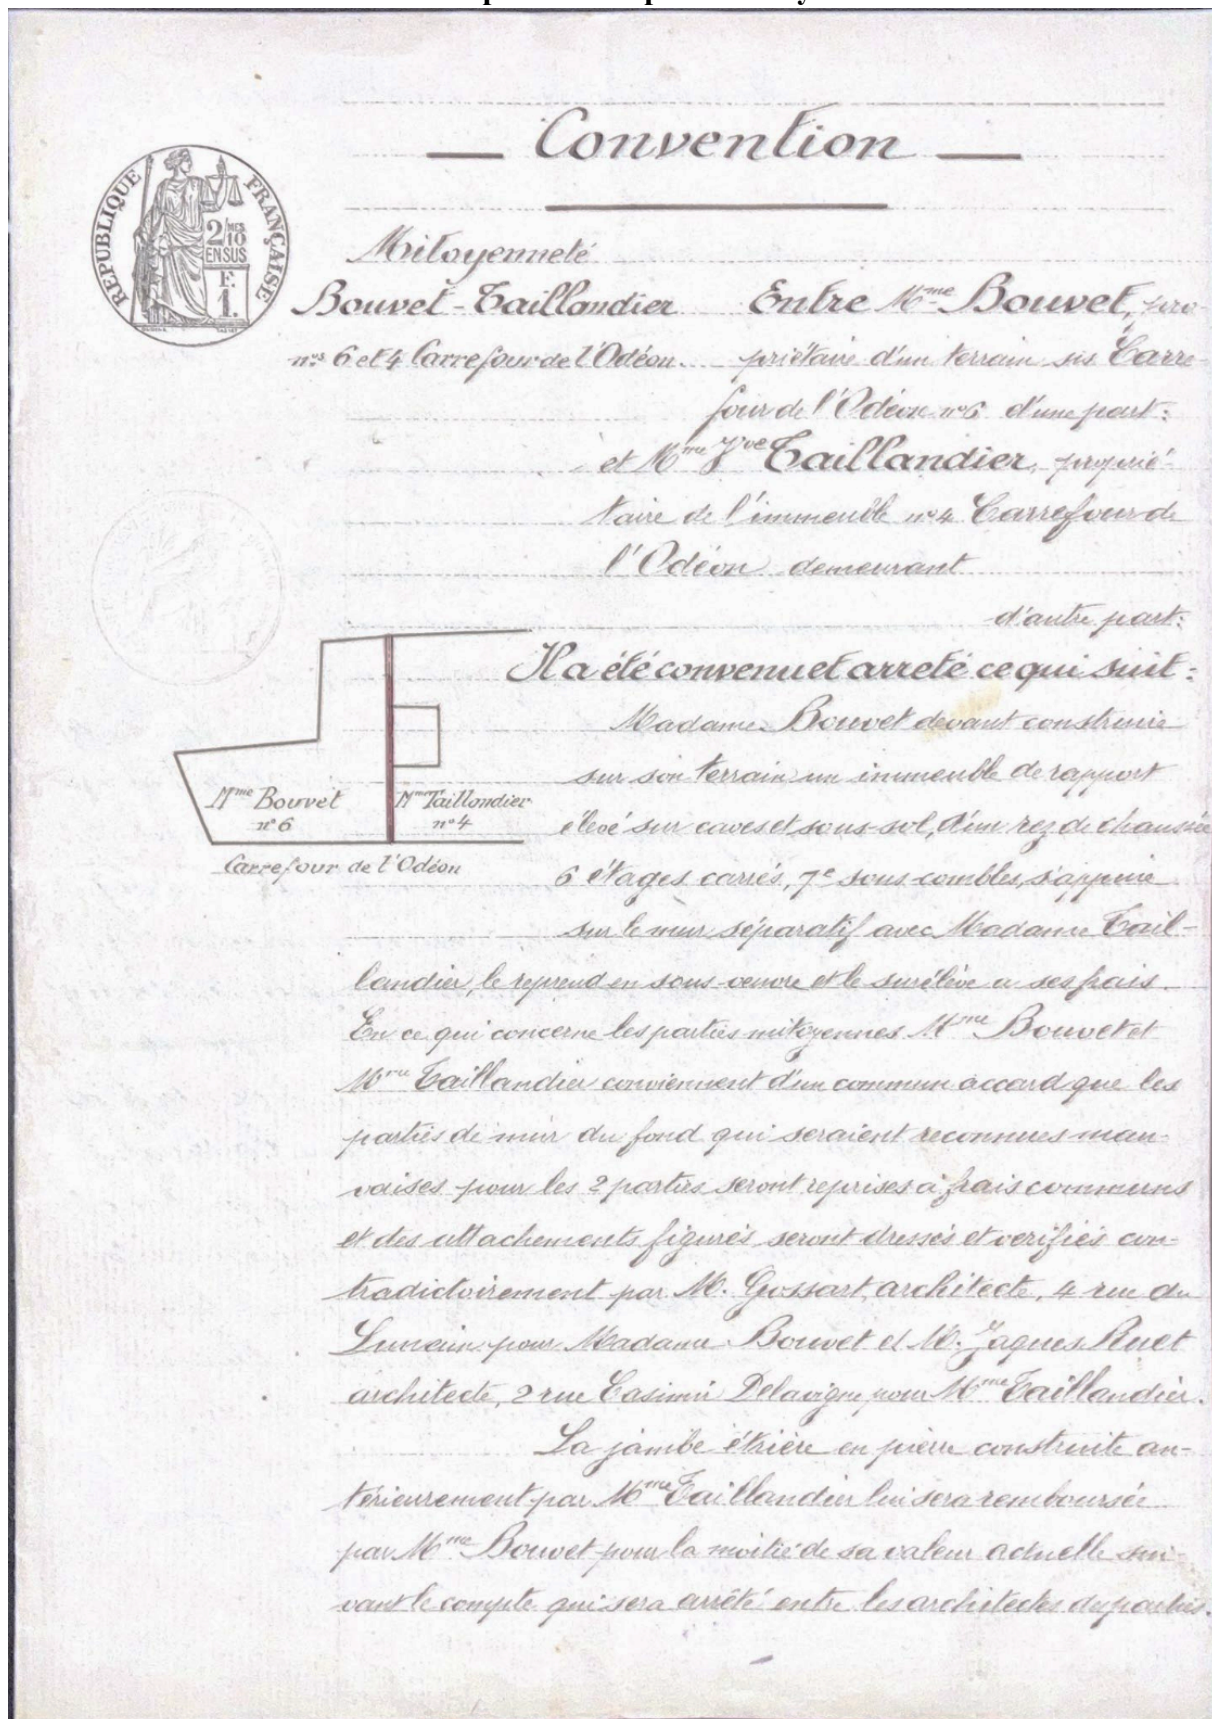 Convention
RÉPUBLIQUE FRANÇAISE
2/10 MES
EN SUS
F.
1.
Mitoyenneté
Bouvet - Taillandier
nos 6 et 4 Carrefour de l'Odéon.
Entre Mme Bouvet, pro-
priétaire d'un terrain sis Carre-
four de l'Odéon n°6 d'une part:
et Mme Vve Taillandier, proprié-
taire de l'immeuble n°4 Carrefour de
l'Odéon demeurant
d'autre part:
Il a été convenu et arreté ce qui suit:
Mme Bouvet
n° 6
Mme Taillandier
n° 4
Carrefour de l'Odéon
Madame Bouvet devant construire
sur son terrain un immeuble de rapport
élevé sur caves et sous-sol, d'un rez de chaussée
6 étages carrés, 7e sous-combles, s'appuie
sur le mur séparatif avec Madame Tail-
landier, le reprend en sous-œuvre et le surélève a ses frais.
En ce qui concerne les parties mitoyennes Mme Bouvet et
Mme Taillandier conviennent d'un commun accord que les
parties de mur du fond qui seraient reconnues mau-
vaises pour les 2 parties seront reprises à frais communs
et des attachements figurés seront dressés et verifiés con-
tradictoirement par M. Gossart, architecte, 4 rue du
pour Madame Bouvet et M. Jaques Ruet
architecte, 2 rue Casimir Delavigne pour Mme Taillandier.
La jambe étrière en pierre construite an-
térieurement par Mme Taillandier lui sera remboursée
par Mme Bouvet pour la moitié de sa valeur actuelle sui-
vant le compte qui sera arrêté entre les architectes des parties.